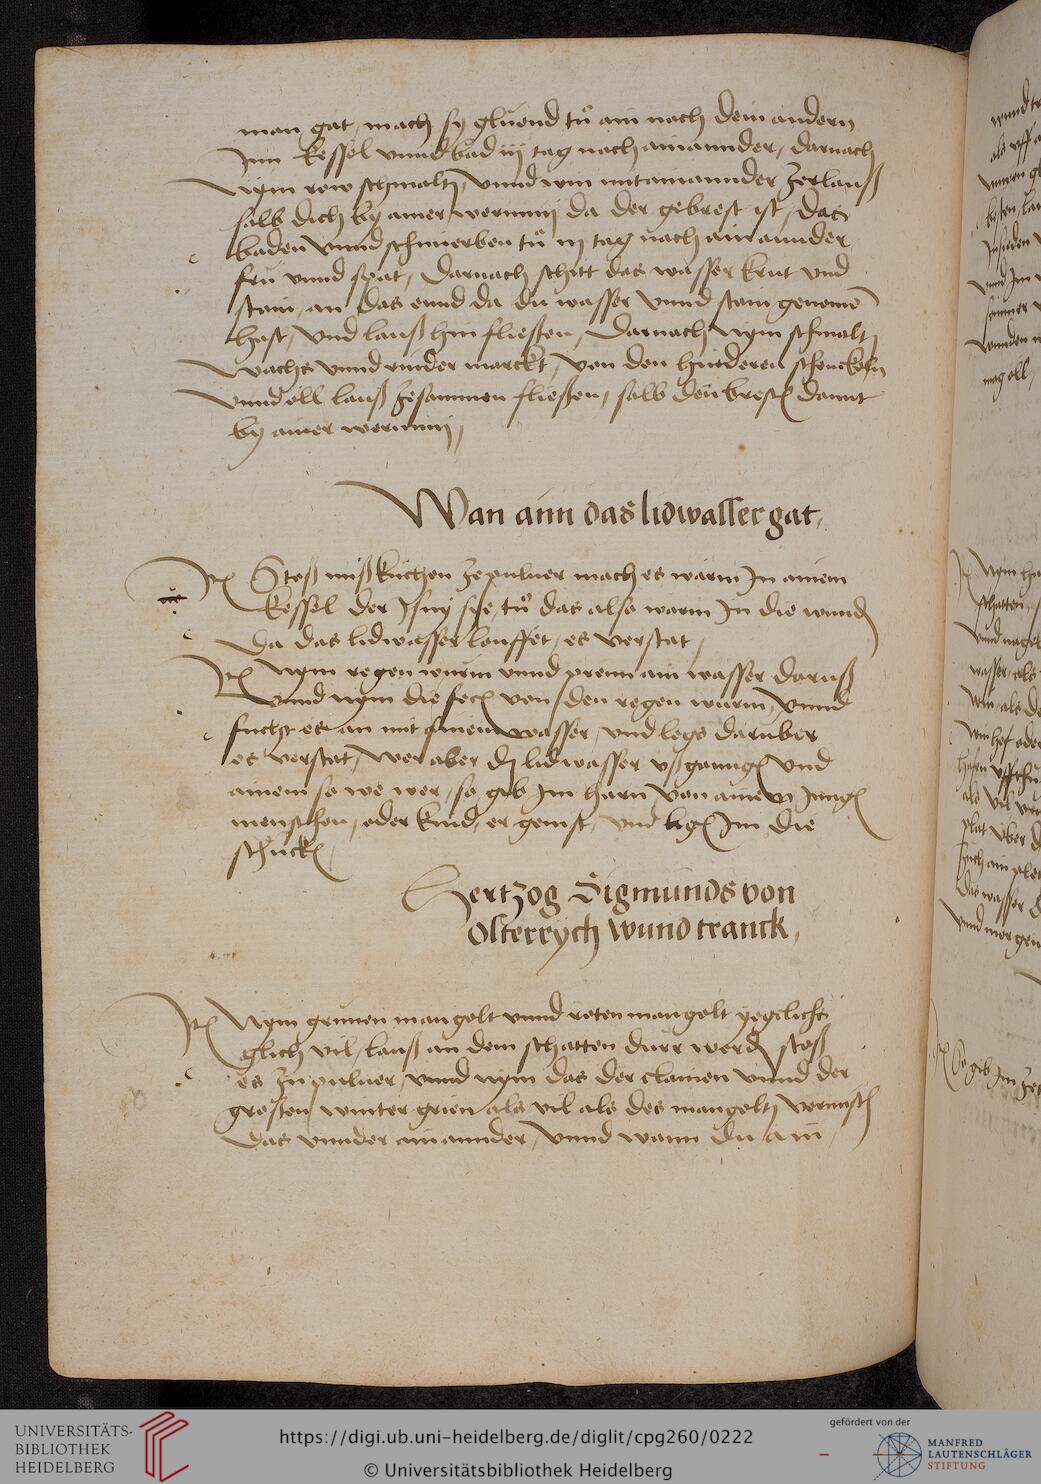 man gat / mach sy gluend tů ain nach dem andern
Inn kessel vnnd bad iij tag nach ainannder / darnach
Nym row schmaltz / vnnd win mitainannder zerlauß
salb dich by ainer wermin da der gebrest ist / das
baden vnnd schmierben tů iij tag nach ainannder
frů vnnd spat / Darnach schitt das wasser krut vnd
stain / an das ennd da du wasser vnnd stain genomē
hast / vnd lauß hin fließen / Darnach nym schmaltz
wachs vnnd rinder marckt / von den hinderen schenckeln
vnnd öll lauß zesammen fließen / salb den bresten damit
by ainer wermin /
Wan aim das lidwasser gat /
Itē Stoß nußkuchen ze puluer mach es warm In ainem
kessel der sye, tů das also warm In die wunden
da das lidwasser louffet / es verstat /
Itē Nym regenwurm vnnd prenn ain wasser daruß
vnnd nym die von den regen wurm / vnnd
fucht es an mit sinem wasser / vnd legs daruber
es verstat / wer aber dz lidwasser vßganngē vnd
ainem so we wer / so geb im harn von ainem Jungē
menschen / oder kind / er genist / vnd Im die
Hertzog Sigmunds von
Osterrych wund tranck /
Itē Nym grunen mangolt vnnd roten mangolt yegclichs
glich vil / lauß an dem schatten durr werden stoß
es zu puluer / vnnd nym das der clainen vnnd der
grosten winter grien als vil als des mangoltz vermisch
das vnnder ainannder / vnnd wann du ain
UNIVERSITÄTS-
BIBLIOTHEK
HEIDELBERG
https://digi.ub.uni-heidelberg.de/diglit/cpg260/0222
© Universitätsbibliothek Heidelberg
gefördert von der
MANFRED
LAUTENSCHLÄGER
STIFTUNG